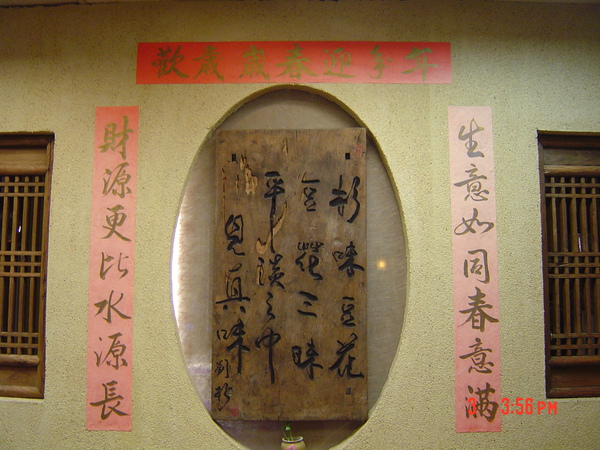 年年迎春歲歲歡
生意如同春意滿
杉味豆花
三味
平淡之中
見真味
財源更比水源長
3:56 PM